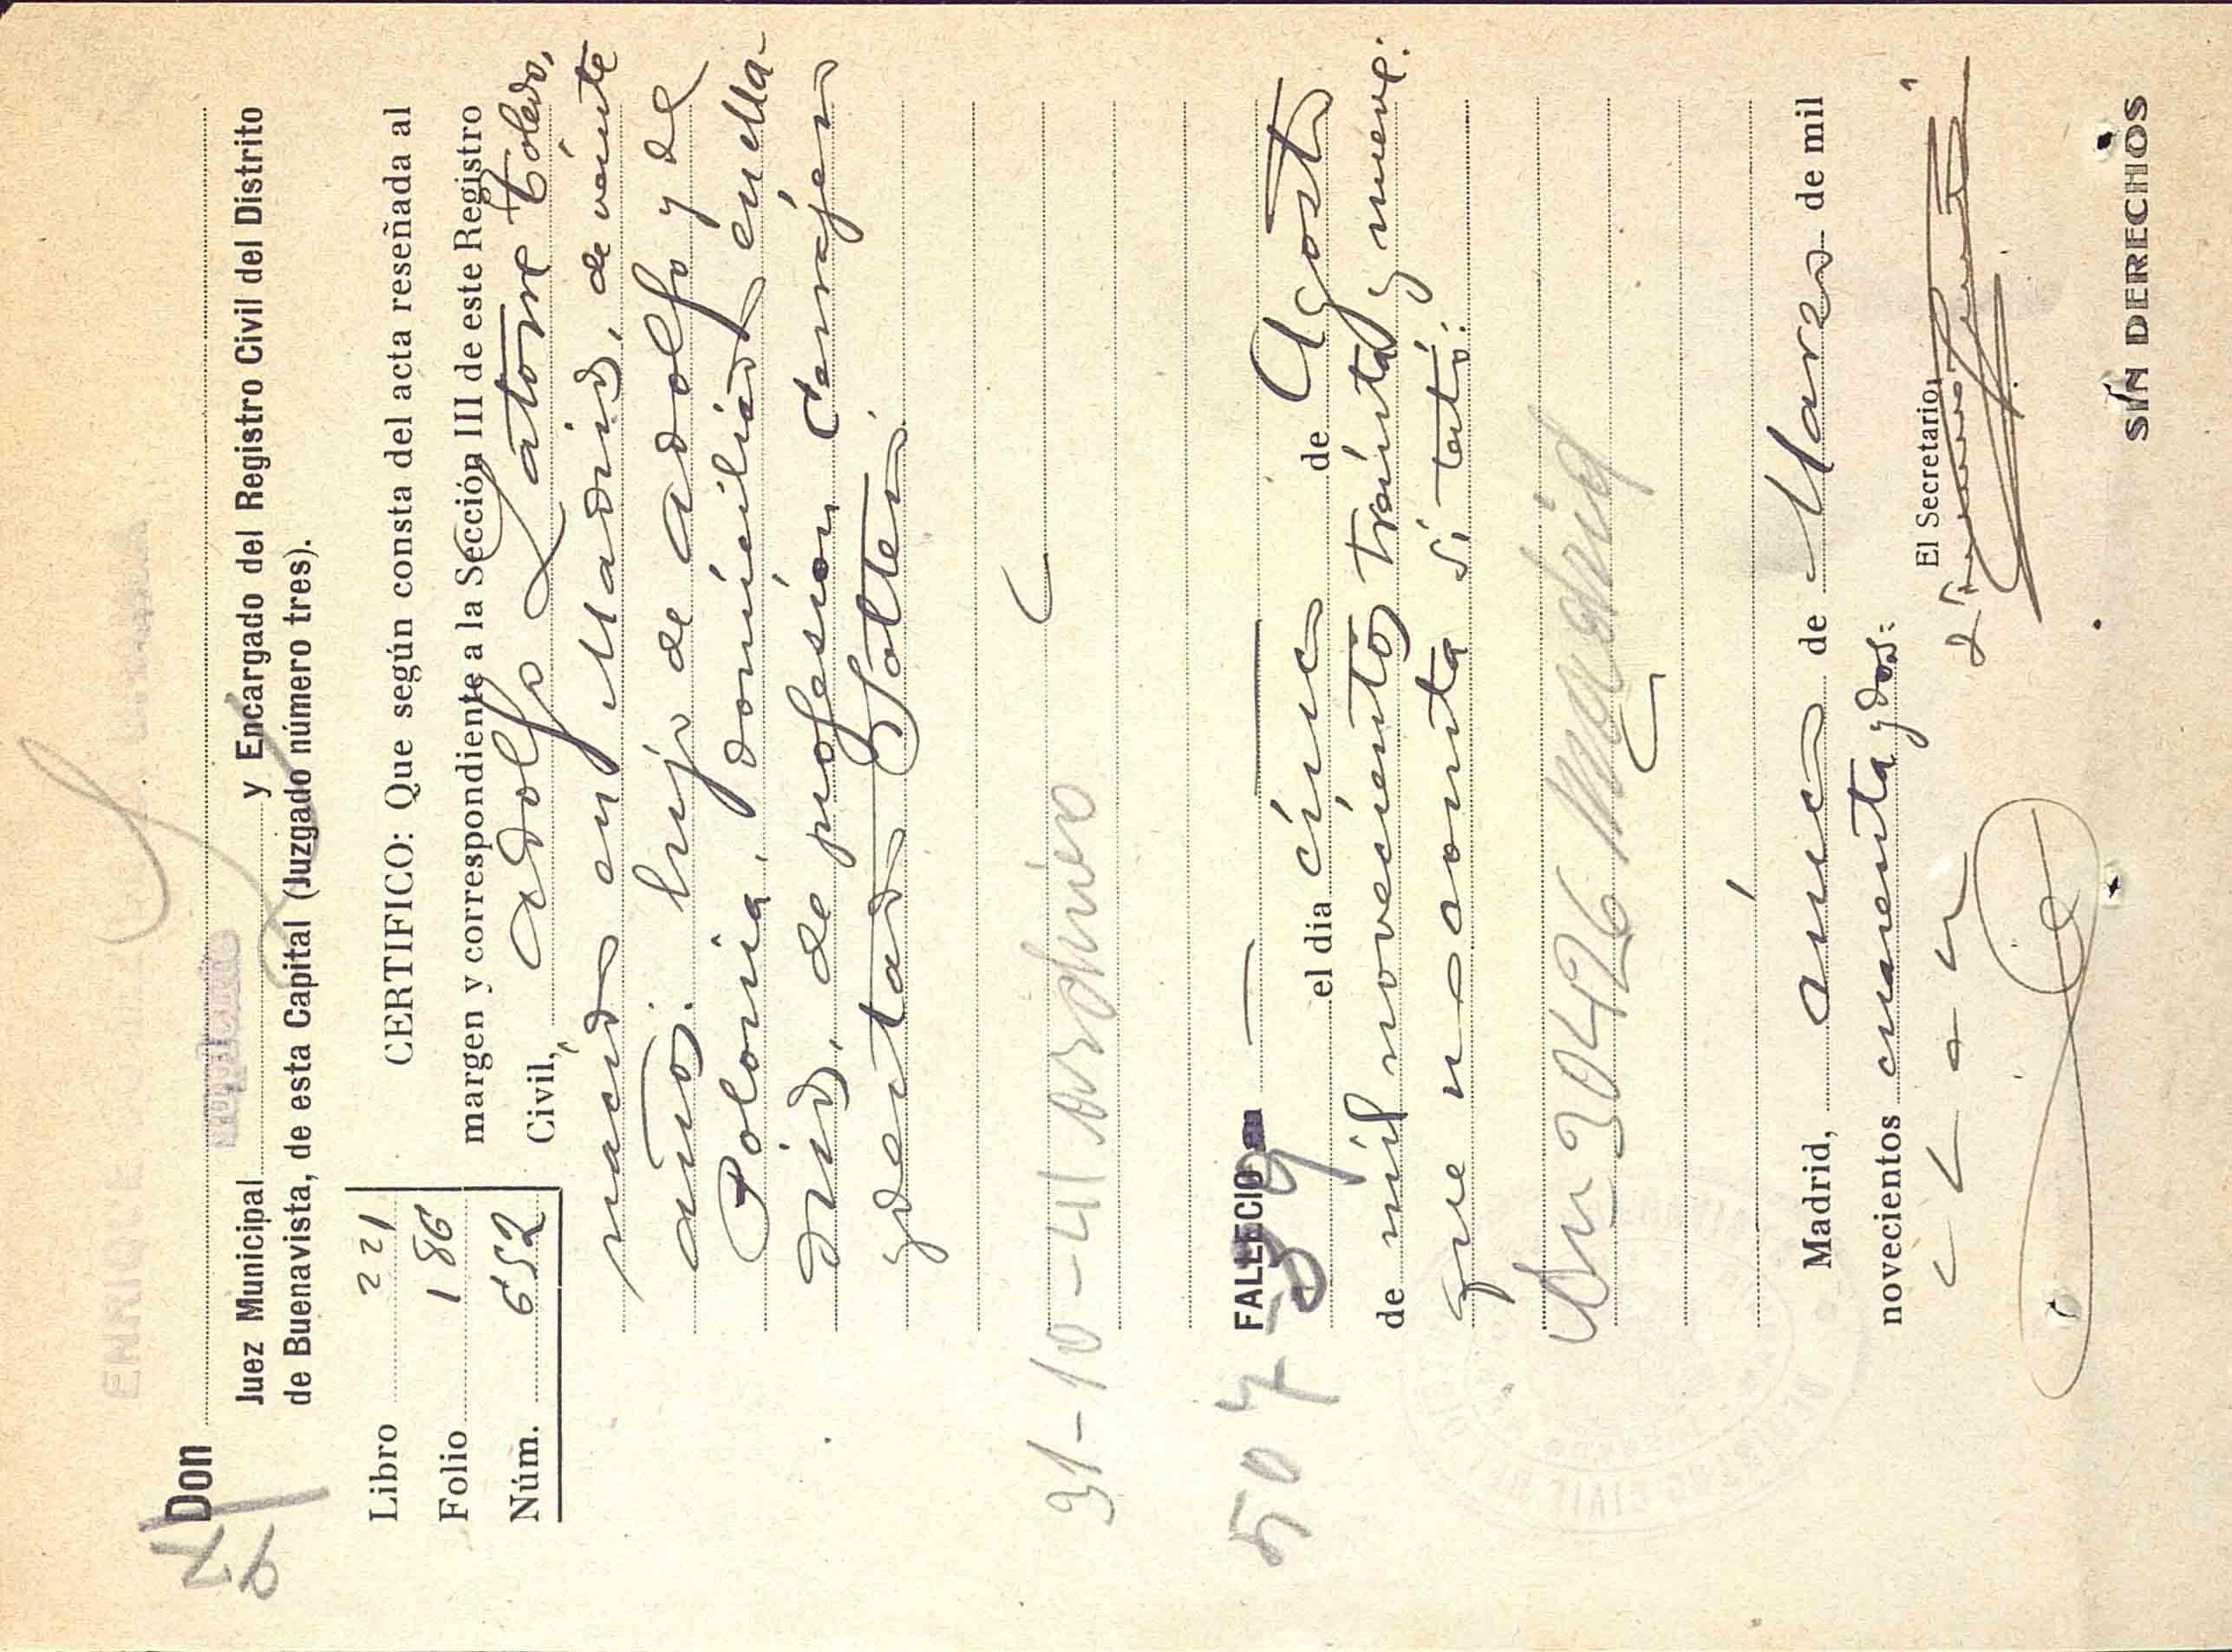 ENRIQUE
Don
26
Juez Municipal suplente y Encargado del Registro Civil del Distrito
de Buenavista, de esta Capital (Juzgado número tres).
Libro 221
Folio 186
Núm. 652
CERTIFICO: Que según consta del acta reseñada al
margen y correspondiente a la Sección III de este Registro
Civil, Adolfo Latorre Toledo,
nacido en Madrid, de veinte
años. hijo de Adolfo y de
Polonia, domiciliado en Ma-
drid, de profesión
y estado soltero.
31-10-41
FALLECIO
50 7-39
el dia cinco de Agosto
de mil novecientos treinta y nueve.
que no consta si testó.
30426 Madrid
Madrid, once de Marzo de mil
novecientos cuarenta y dos:
El Secretario,
SIN DERECHOS